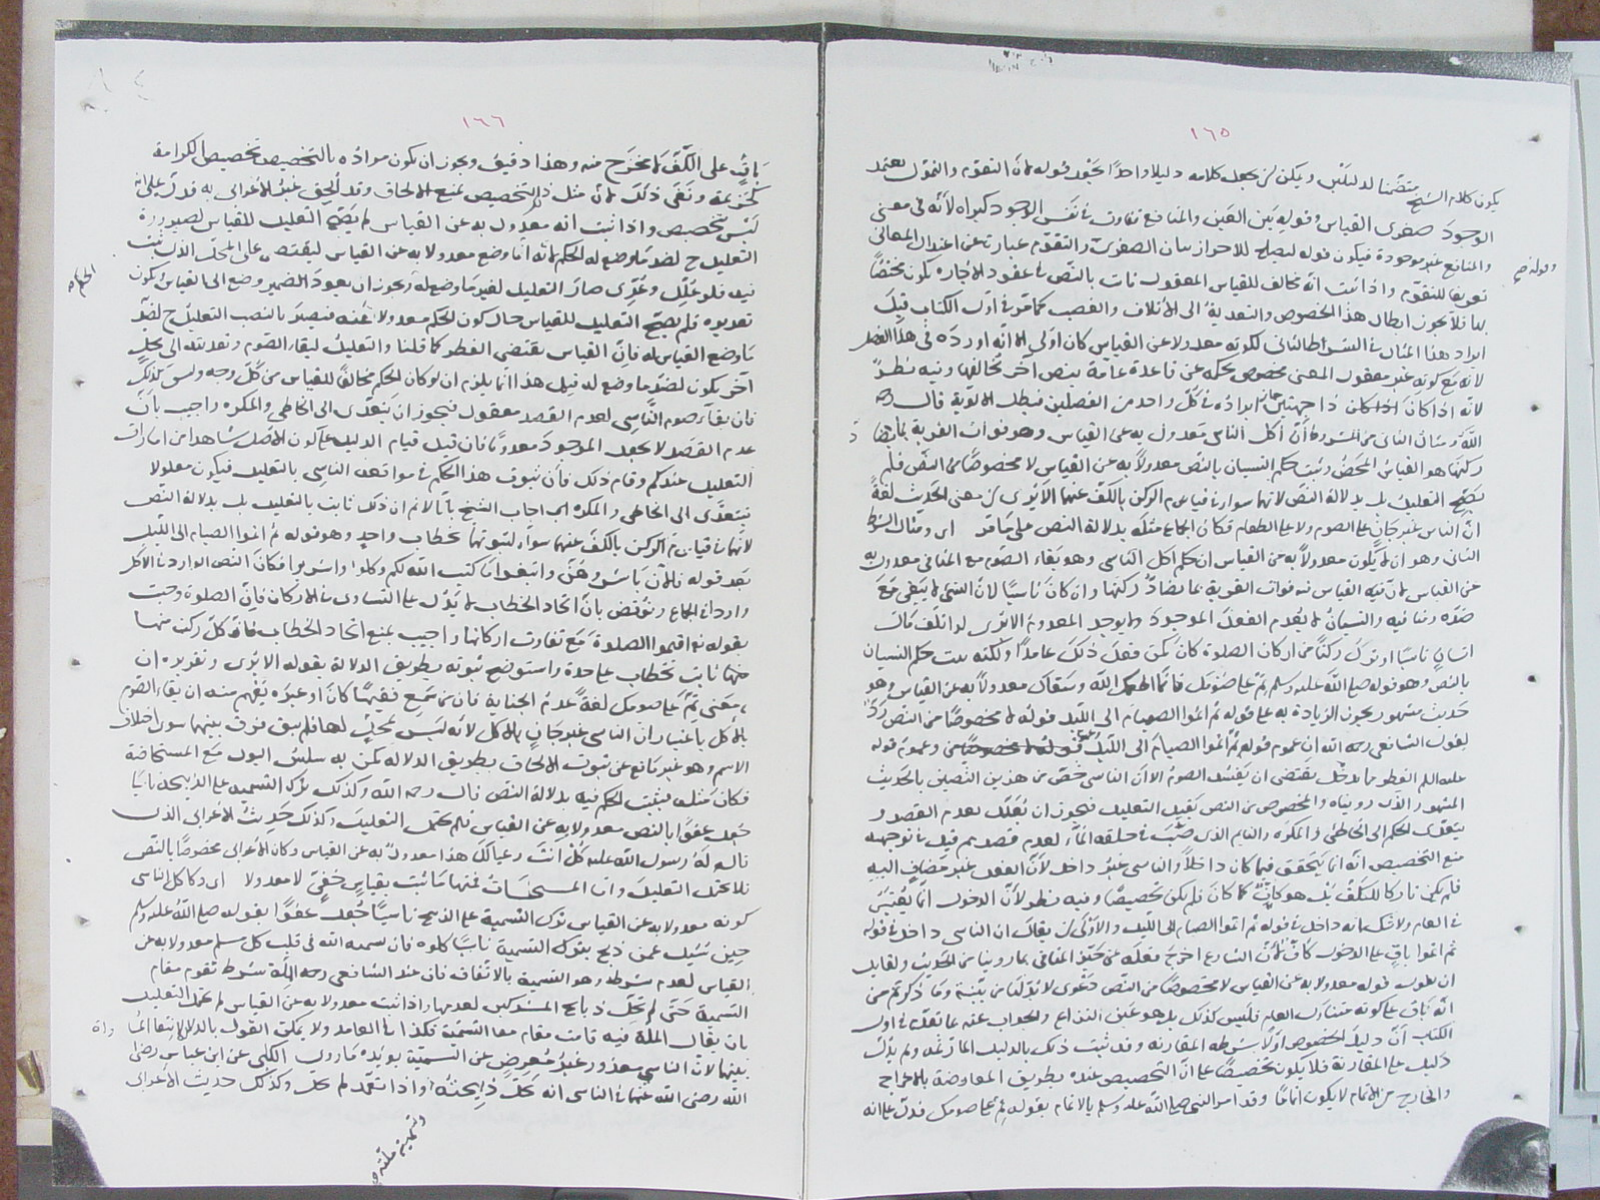 ١٦٥
يكون كلام الشيخ متضمنا لدليلين ويمكن ان يجعل كلامه دليلا واحدا بجعل قوله لان التقوم والتمول يعتمد
الوجود صغرى القياس وقوله بين العين والمنافع تفاوت في نفس الوجود كبراه لانه في معنى
والمنافع غير موجودة فيكون قوله ليصلح للاحراز بيان الصغرى والتقوم عبارة عن اعتدال المعانى
تعريفا للتقوم واذا ثبت انه مخالف للقياس المعقول ثابت بالنص في عقود الاجارة يكون مختصا
بها فلا يجوز ابطال هذا الخصوص والتعدية الى الاتلاف والغصب كما مر في اول الكتاب قيل
ايراد هذا المثال في الشرط الثانى لكونه معدولا عن القياس كان اولى الا انه اورده في هذا الفصل
لانه مع كونه غير معقول المعنى مخصوص بحكمه عن قاعدة عامة بنص آخر تخالفها وفيه نظر
لانه اذا كان ذا جهتين جاز ايراده في كل واحد من الفصلين فبطل الاولوية قال رحمه
الله ومثال الثانى من الشروط أن أكل الناسى معدول به عن القياس وهو فوات القربة بما يضاد
ركنها هو القياس المحض وثبت حكم النسيان بالنص معدولا به عن القياس لا مخصوصا من النص فلم
يصح التعليل بل بدلالة النص لانهما سواء في قيام الركن بالكف عنهما الا يرى ان معنى الحديث لغة
ان الناسى غير جان على الصوم ولا على الطعام فكان الجماع مثله بدلالة النص على ما مر اى ومثال الشرط
الثانى وهو ان لا يكون معدولا به عن القياس ان حكم اكل الناسى وهو بقاء الصوم مع المنافى معدول به
عن القياس لان فيه القياس فيه فوات القربة بما يضاد ركنها وان كان ناسيا لان الشئ لا يبقى مع
ضده ومنافيه والنسيان لا يعدم الفعل الموجود ولا يوجد المعدوم الا يرى لو اتلف مال
انسان ناسيا او ترك ركنا من اركان الصلوة كان كمن فعل ذلك عامدا ولكنه ثبت حكم النسيان
بالنص وهو قوله صلى الله عليه وسلم تم على صومك فانما اطعمك الله وسقاك معدولا به عن القياس وهو
حديث مشهور يجوز الزيادة به على قوله ثم اتموا الصيام الى الليل قوله لا مخصوصا من النص رد
لقول الشافعى رحمه الله ان عموم قوله ثم اتموا الصيام الى الليل وعموم قوله
عليه السلم الفطر مما يدخل يقتضى ان يفسد الصوم الا ان الناسى خص من هذين النصين بالحديث
المشهور الذى رويناه والمخصوص من النص يقبل التعليل فيجوز ان يعلل بعدم القصد و
يتعدى الحكم الى الخاطئ والمكره والنايم الذى صب في حلقه الماء لعدم قصدهم قيل في توجيهه
منع التخصيص انه انما يتحقق فيما كان داخلا والناسى غير داخل لان الفعل غير مضاف اليه
فلم يكن تاركا للكف بل هو كاف كما كان فلم يكن تخصيصا وفيه نظر لان الدخول انما يعتبر
في العام ولا شك انه داخل في قوله ثم اتموا الصيام الى الليل والاولى ان يقال ان الناسى داخل في قوله
ثم اتموا باق على الدخول كاف لان الشارع اخرج فعله من حيز المنافى بما روينا من الحديث ولقايل
ان يقول قوله معدولا به عن القياس لا مخصوصا من النص دعوى لا بد لها من بينة وما ذكرتم من
انه باق على كونه متناول العام فليس كذلك بل هو عين النزاع والجواب عنه ما تقدم في اول
الكتاب أن دليل الخصوص اولا شرطه المقارنة وقد ثبت ذلك بالدليل الما ولم يدل
دليل على المقارنة فلا يكون تخصيصا على ان التخصيص عنده بطريق المعارضة بالاخراج
والخارج من الاتمام لا يكون اتماما وقد امر النبى صلى الله عليه وسلم بالاتمام بقوله تم على صومك فدل على انه
١٦٦
باق على الكف لا مخرج منه وهذا دقيق ويجوز ان يكون مراده بالتخصيص تخصيص الكرامة
كخزيمة ونفى ذلك لان مثل ذلك التخصيص يمنع الالحاق وقد الحق غير الاعرابى به فدل على انه
ليس بتخصيص واذا ثبت انه معدول به عن القياس لم يصح التعليل للقياس لصيرورة
التعليل ح لضد ما وضع له الحكم لانه انما وضع معدولا به عن القياس ليقتصر على المحل الذى ثبت
فيه فلو علل وعدى صار التعليل لغير ما وضع له ويجوز ان يعود الضمير وضع الى القياس ويكون
تقديره فلم يصح التعليل للقياس حال كون الحكم معدولا عنه فيصير بالنصب التعليل ح لضد
ما وضع القياس له فان القياس يقتضى الفطر كما قلنا والتعليل لبقاء الصوم وتعديته الى محل
آخر يكون لضد ما وضع له قيل هذا انما يلزم ان لو كان الحكم مخالفا للقياس من كل وجه وليس كذلك
فان بقاء صوم الناسى لعدم القصد معقول فيجوز ان يتعدى الى الخاطئ والمكره واجيب بان
عدم القصد لا يجعل الموجود معدوما فان قيل قيام الدليل على كون الاصل شاهدا من امارات
التعليل عندكم وقام ذلك فان ثبوت هذا الحكم في مواقعة الناسى بالتعليل فيكون معلولا
فيتعدى الى الخاطئ والمكره اجاب الشيخ بانا لا نم ان ذلك ثابت بالتعليل بل بدلالة النص
لانهما في قيام الركن بالكف عنهما سواء لثبوتهما بخطاب واحد وهو قوله ثم اتموا الصيام الى الليل
بعد قوله فالآن باشروهن وابتغوا ما كتب الله لكم وكلوا واشربوا فكان النص الوارد في الاكل
واردا في الجماع ونوقض بان اتحاد الخطاب لا يدل على التساوى في الاركان فان الصلوة وجبت
بقوله تع اقيموا الصلوة مع تفاوت اركانها واجيب بمنع اتحاد الخطاب فان كل ركن منها
منها ثابت بخطاب على حدة واستوضح ثبوته بطريق الدلالة بقوله الا يرى وتقريره ان
معنى تم على صومك لغة عدم الجناية فان من سمع فقيها كان او غيره يفهم منه ان بقاء الصوم
بالاكل باعتبار ان الناسى غير جان بالاكل لانه ليس بمحل لها فلم يبق فرق بينهما سوى اختلاف
الاسم وهو غير مانع عن ثبوت الالحاق بطريق الدلالة كمن به سلس البول مع المستحاضة
فكان مثله فيثبت الحكم فيه بدلالة النص قال رحمه الله وكذلك ترك التسمية على الذبيحة ناسيا
جعل عفوا بالنص معدولا به عن القياس فلم يحتمل التعليل وكذلك حديث الاعرابى الذى
قال له رسول الله عليه كل انت وعيالك هذا معدول به عن القياس وكان الاعرابى مخصوصا بالنص
فلا يحتمل التعليل واما المستحسنات فمنها ما ثبت بقياس خفى لا معدولا اى وكاكل الناسى
كونه معدولا به عن القياس ترك التسمية على الذبح ناسيا جعل عفوا بقوله صلى الله عليه وسلم
حين سئل عمن ذبح بترك التسمية ناسيا كلوه فان تسمية الله في قلب كل مسلم معدولا به عن
القياس لعدم شرطه وهو التسمية بالاتفاق فان عند الشافعى رحمه الله الملة شرط تقوم مقام
التسمية حتى لم تحل ذبائح المشركين لعدمها واذا ثبت معدولا به عن القياس لم يحتمل التعليل
بان يقال الملة فيه قامت مقام معنى التسمية فكذا في العامد ولا يمكن القول بالدلالة لانتفاء المساواة
بينهما لان الناسى معذور غير معرض عن التسمية يؤيده ما روى الكلبى عن ابن عباس رضى
الله رضى الله عنهما في الناسى انه تحل ذبيحته واذا تعمد لم تحل وكذلك حديث الاعرابى